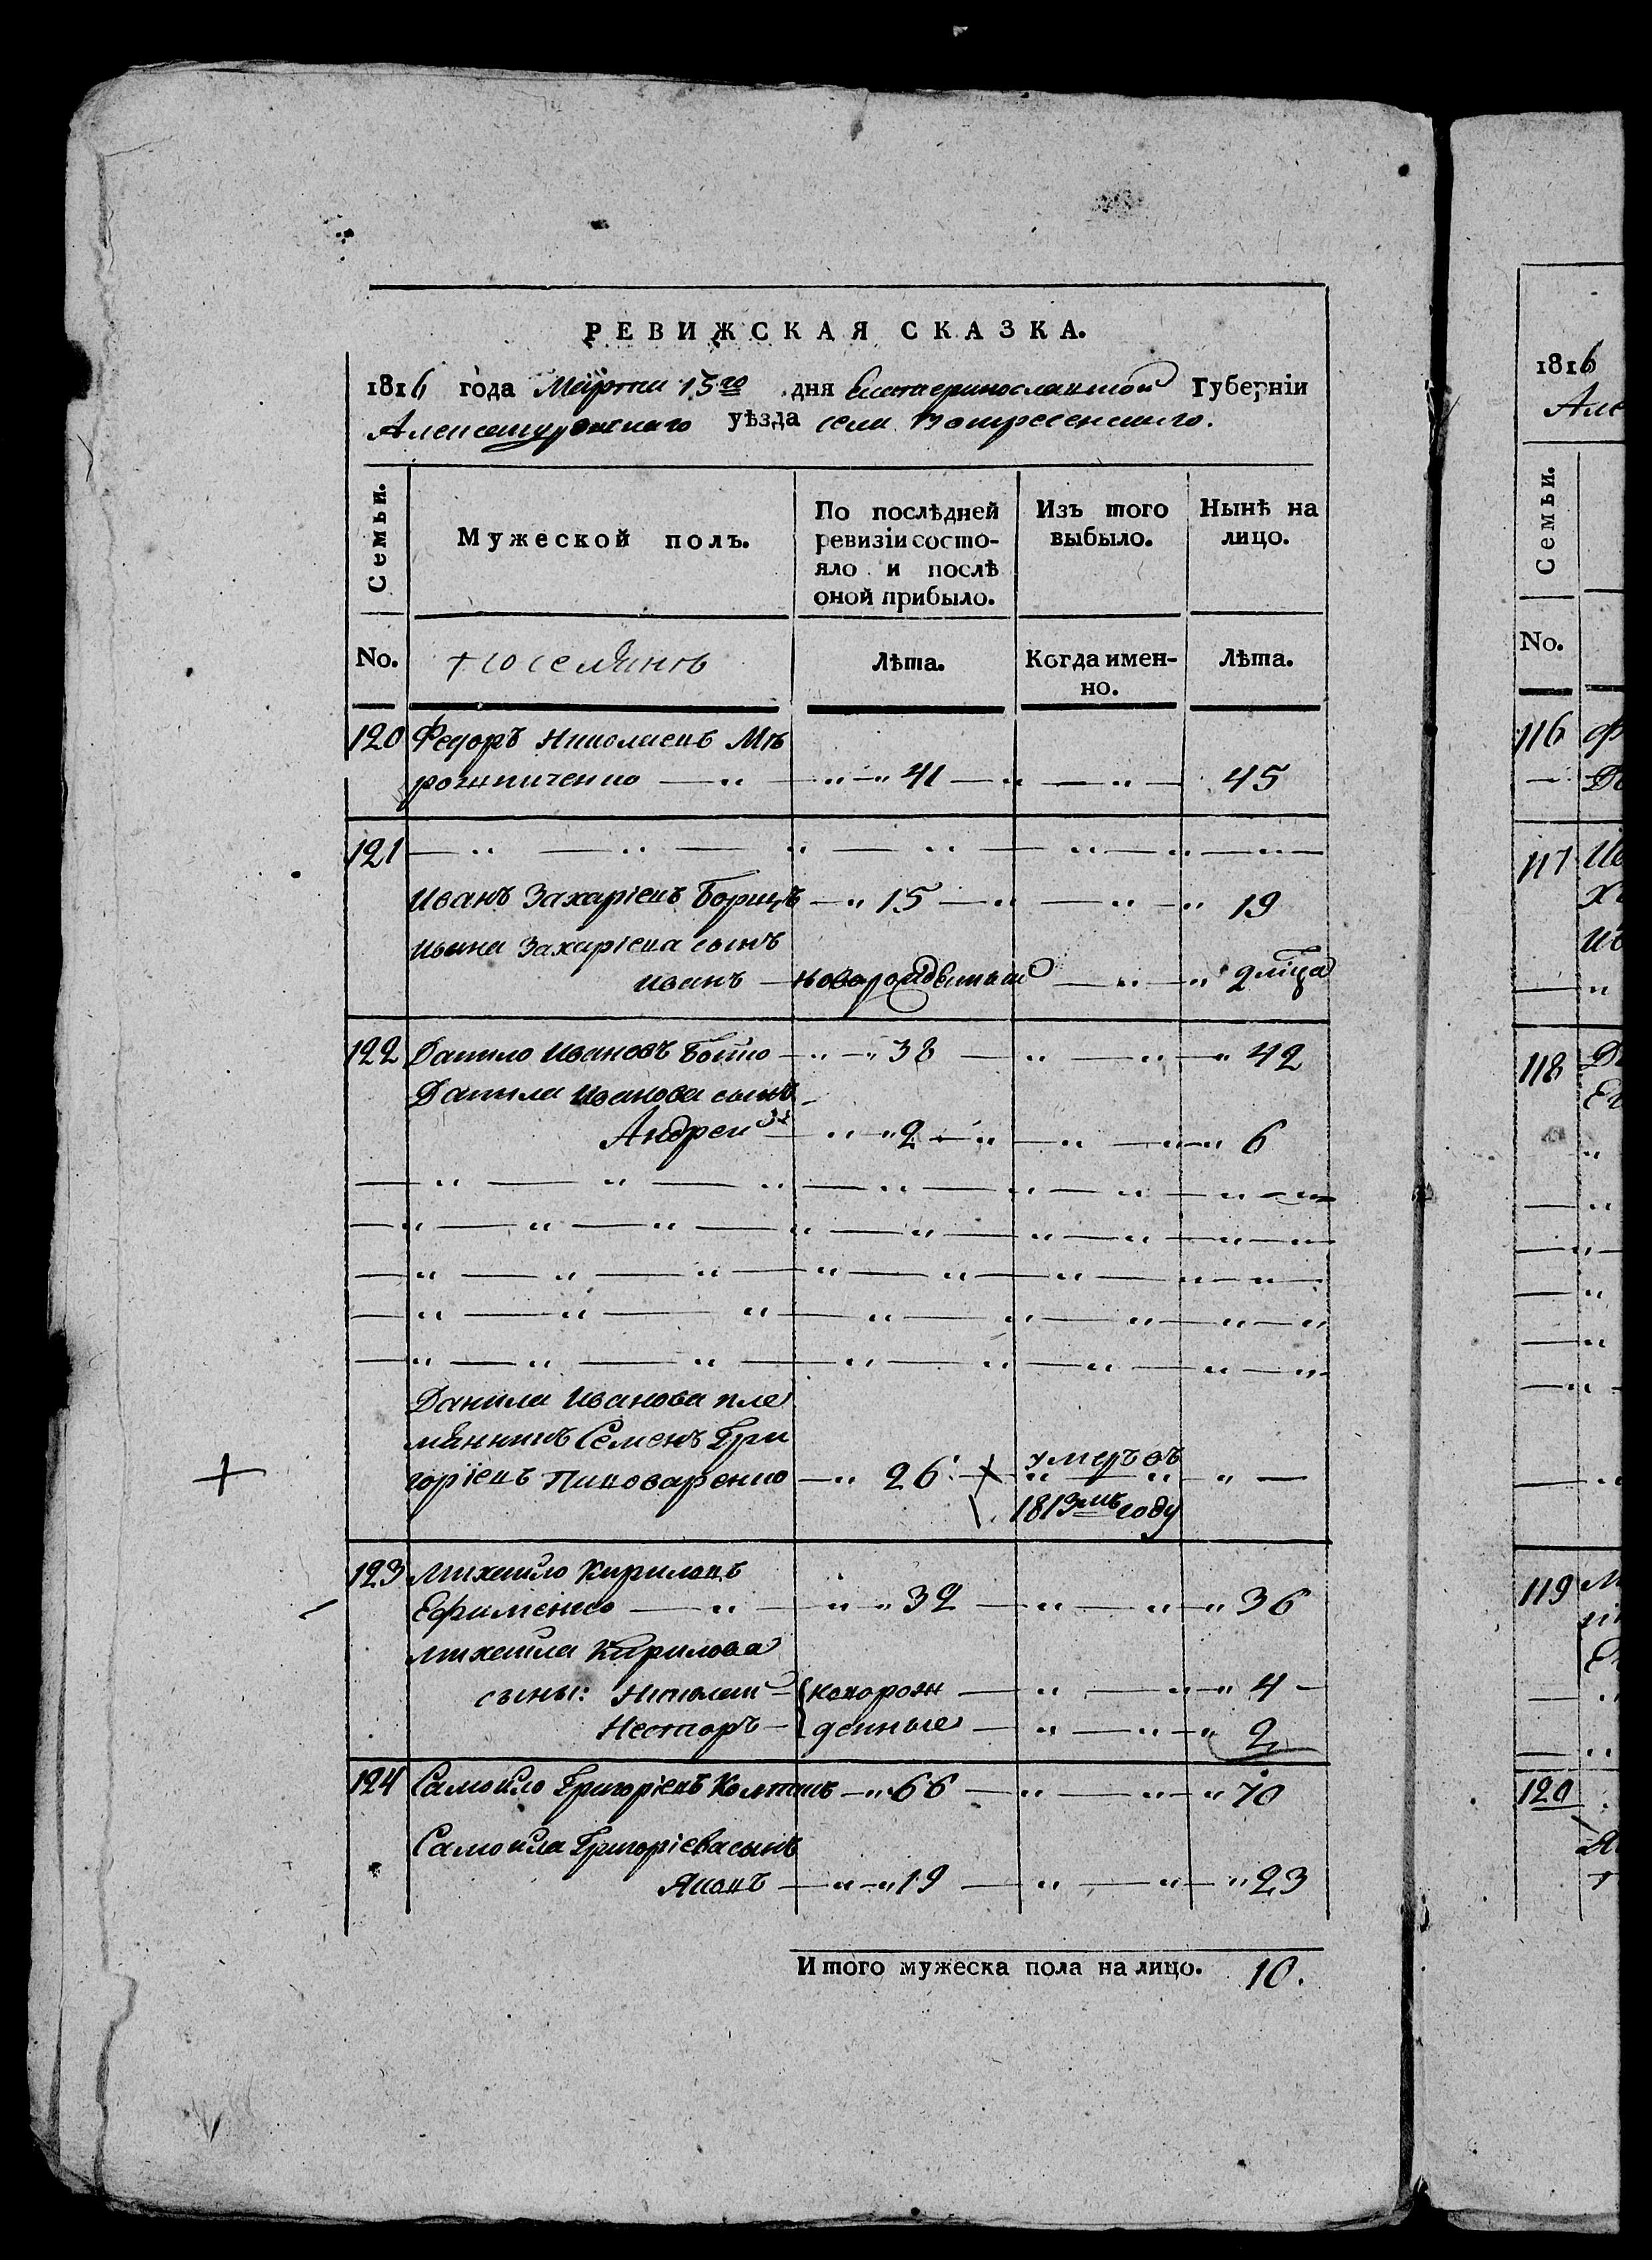 РЕВИЖСКАЯ СКАЗКА.
1816 года Марта 15го дня Екатеринославской Губерніи
Александровскаго уѣзда села Воскресенскаго.
Семьи.
Мужеской полъ.
По послѣдней ревизіи состо-
яло и послѣ
оной прибыло.
Изъ того
выбыло.
Нынѣ на
лицо.
No.
поселянъ
Лѣта.
Когда имен-
но.
Лѣта.
120 Федоръ Николаевъ Мѣ
рошниченко — 41 — 45
121
Иванъ Захаріевъ Борщъ — 15 — 19
Ивана Захаріева сынъ
Иванъ — новорожденный — 2 мѣца
122 Данило Ивановъ — 38 — 42
Данила Иванова сынъ
Андрей — 2 — 6
Данила Иванова пле
мянникъ Семенъ Гри
горіевъ Пивоваренко — 26 — умеръ въ
1813мъ году
123 Михайло Кириловъ
Ефименко — 32 — 36
Михайла Кирилова
сыны: Николай — новорож — 4
Несторъ — денные — 2
124 Самойло Григоріевъ — 66 — 70
Самойла Григоріева сынъ
Яковъ — 19 — 23
Итого мужеска пола на лицо. 10.
1816
Але
Семьи.
No.
116
117
118
119
120